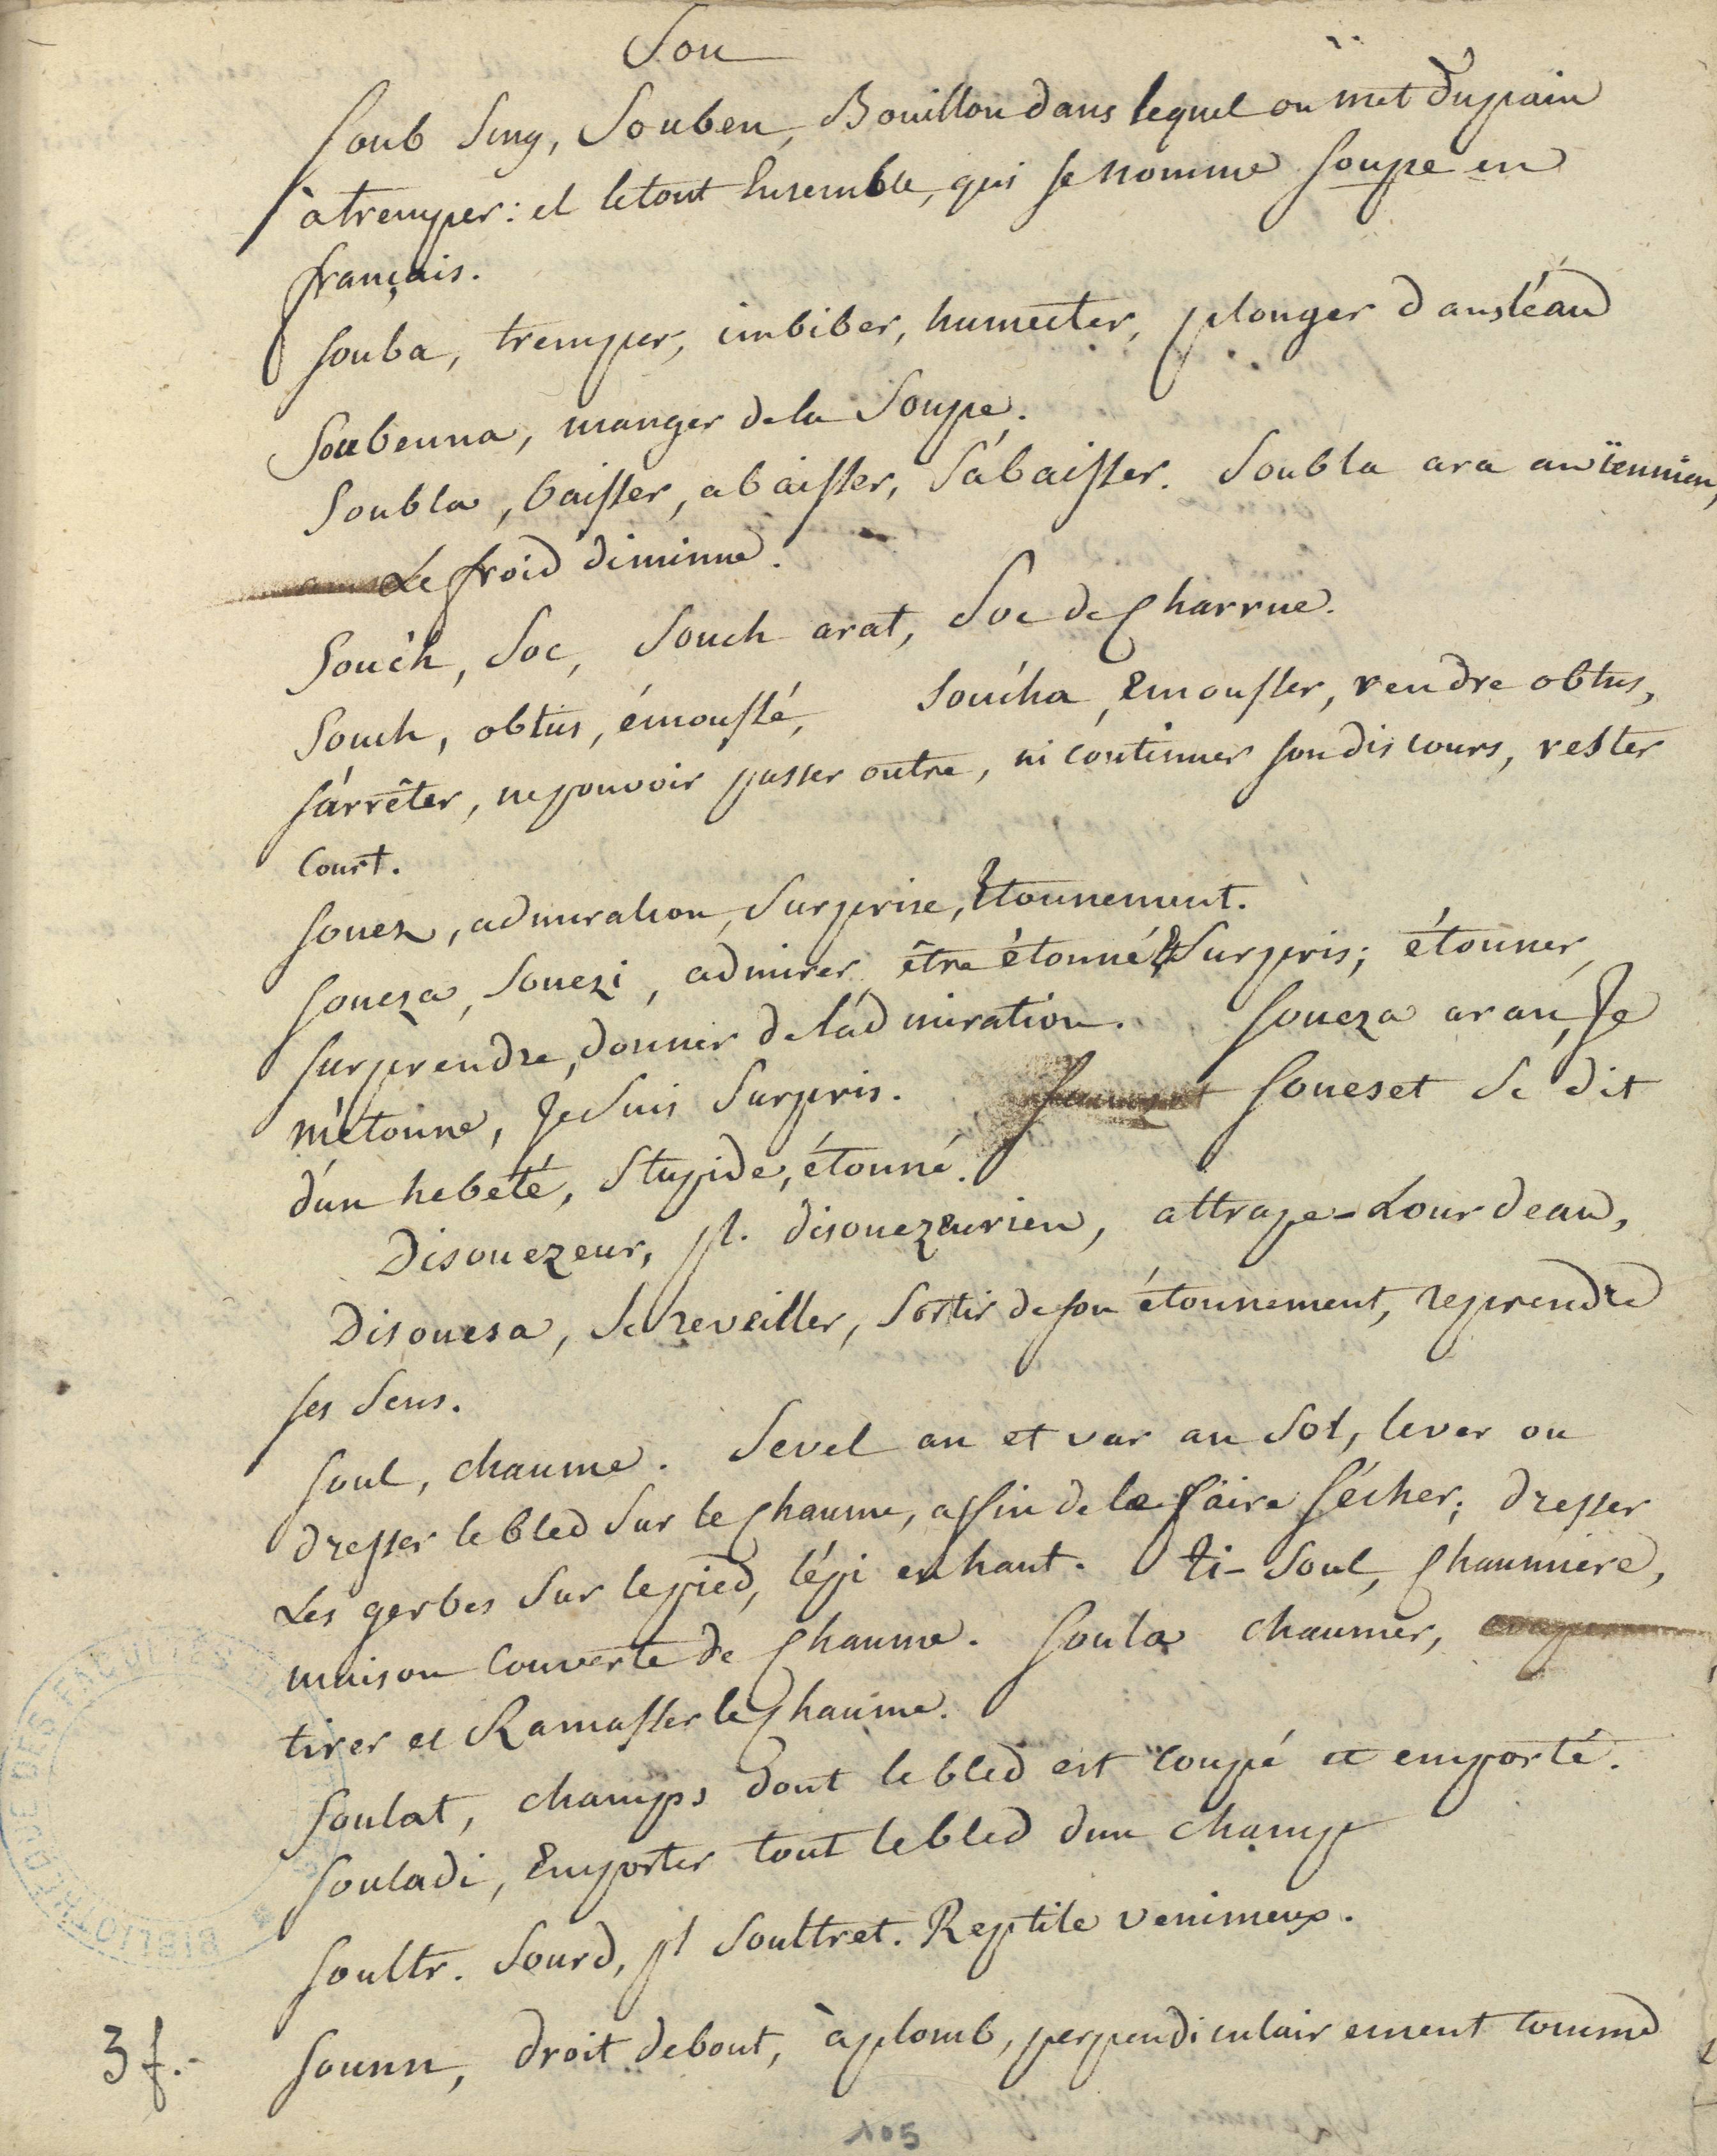 Sou
Soub Sing, Souben, Bouillon dans lequel on met du pain
à tremper: et le tout Ensemble, qui se nomme Soupe en
français.
Souba, tremper, imbiber, humecter, plonger dans l'éau
Soubenna, manger de la Soupe.
Soubla, baisser, abaisser, S'abaisser. Soubla ara an ïennien,
Le froid diminue.
Souc'h, Soc, Souch arat, Soc de Charrue.
Souch, obtus, émoussé, Souc'ha, Emousser, rendre obtus,
s'arrêter, ne pouvoir passer outre, ni continuer son discours, rester
Court.
Souez, admiration, Surprise, Etonnement.
Soueza, Souezi, admirer, être étonné & Surpris; étonner,
surprendre, donner de l'admiration. Soueza aran, Je
m'étonne, Je Suis Surpris. Soueset Se dit
d'un hebeté, Stupide, étonné.
Disouezeur, pl. disouezeurien, attrape-Lourdeau,
Disouesa, Se reveiller, Sortir de son étonnement, reprendre
ses Sens.
Soul, chaume. Sevel an et var an Sol, lever ou
dresser le bled Sur le Chaume, affin de le faire Sécher; dresser
Les gerbes Sur le pied, l'épi en haut. ti-Soul, Chaumiere,
maison Couverte de Chaume. Soula chaumer,
tirer et Ramasser le Chaume.
Soulat, champs dont le bled est Coupé et emporté.
Souladi, Emporter tout le bled d'un champ
Soultr. Sourd, pl Soultret. Reptile venimeux.
Sounn, droit debout, à plomb, perpendiculairement comme
3 f.-
105
BIBLIOTHEQUE DES FACULTES DE